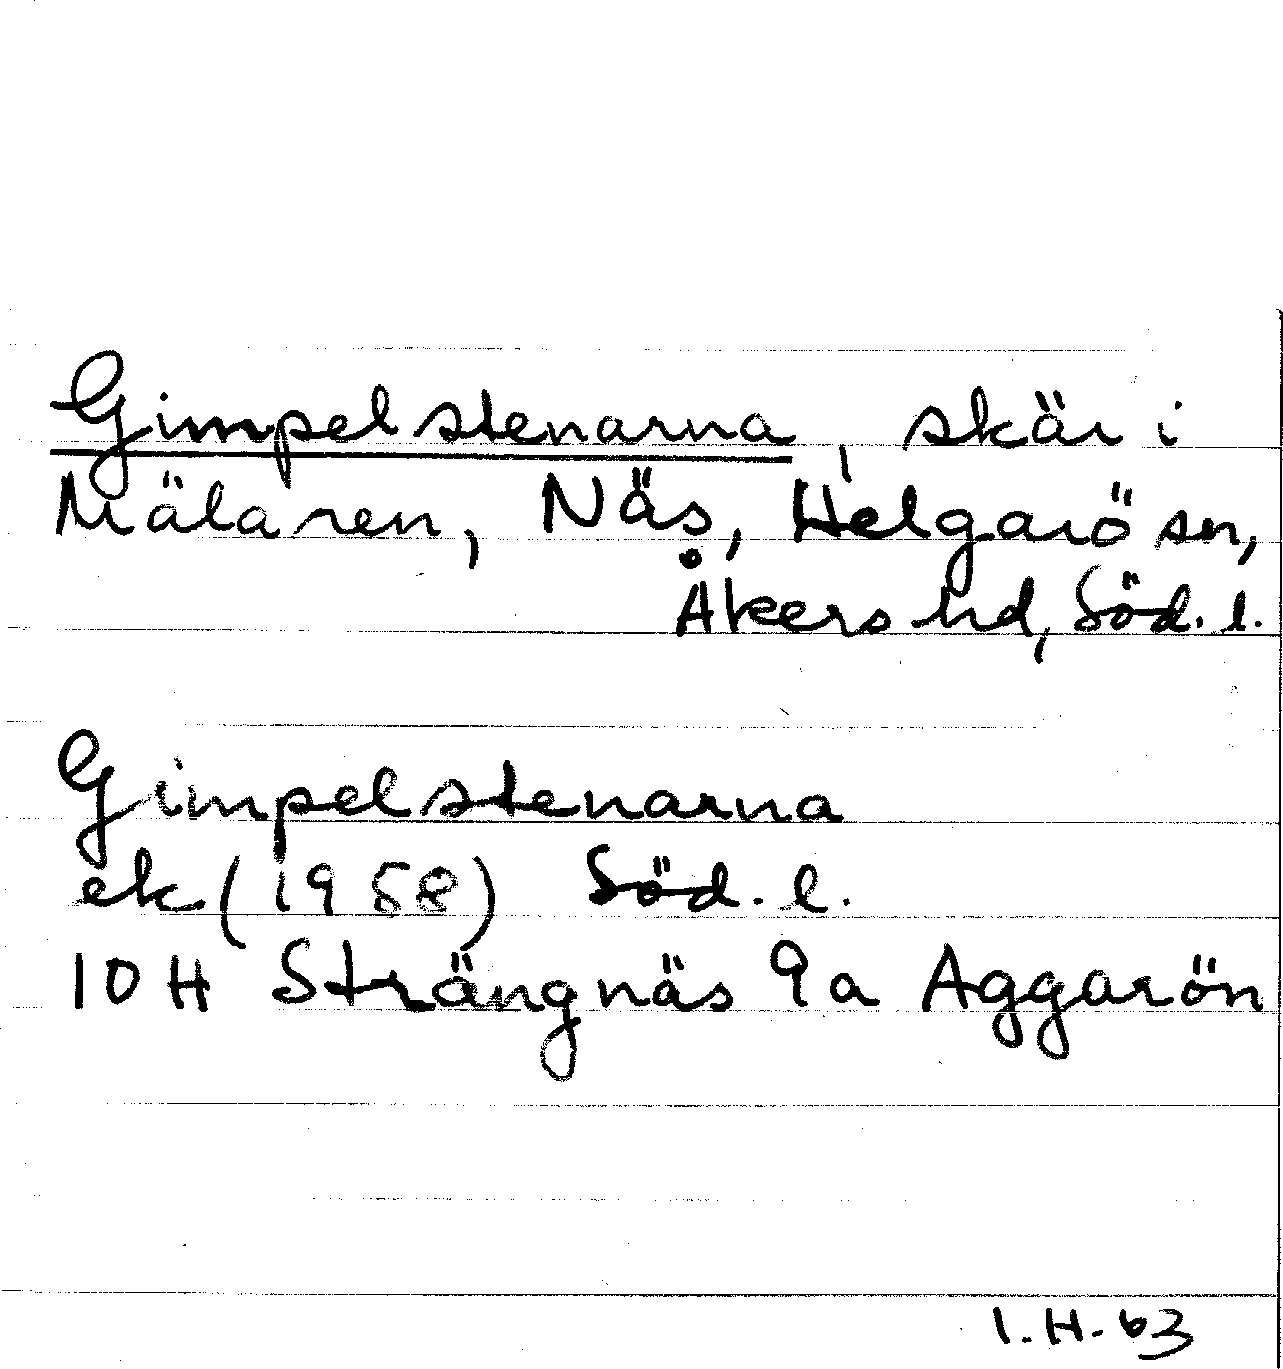 Gimpelstenarna, skär i
Mälaren, Näs, Helgarö sn,
Åkers hd, Söd. l.
Gimpelstenarna
ek (1958) Söd. l.
10H Strängnäs 9a Aggarön
I.H. 63